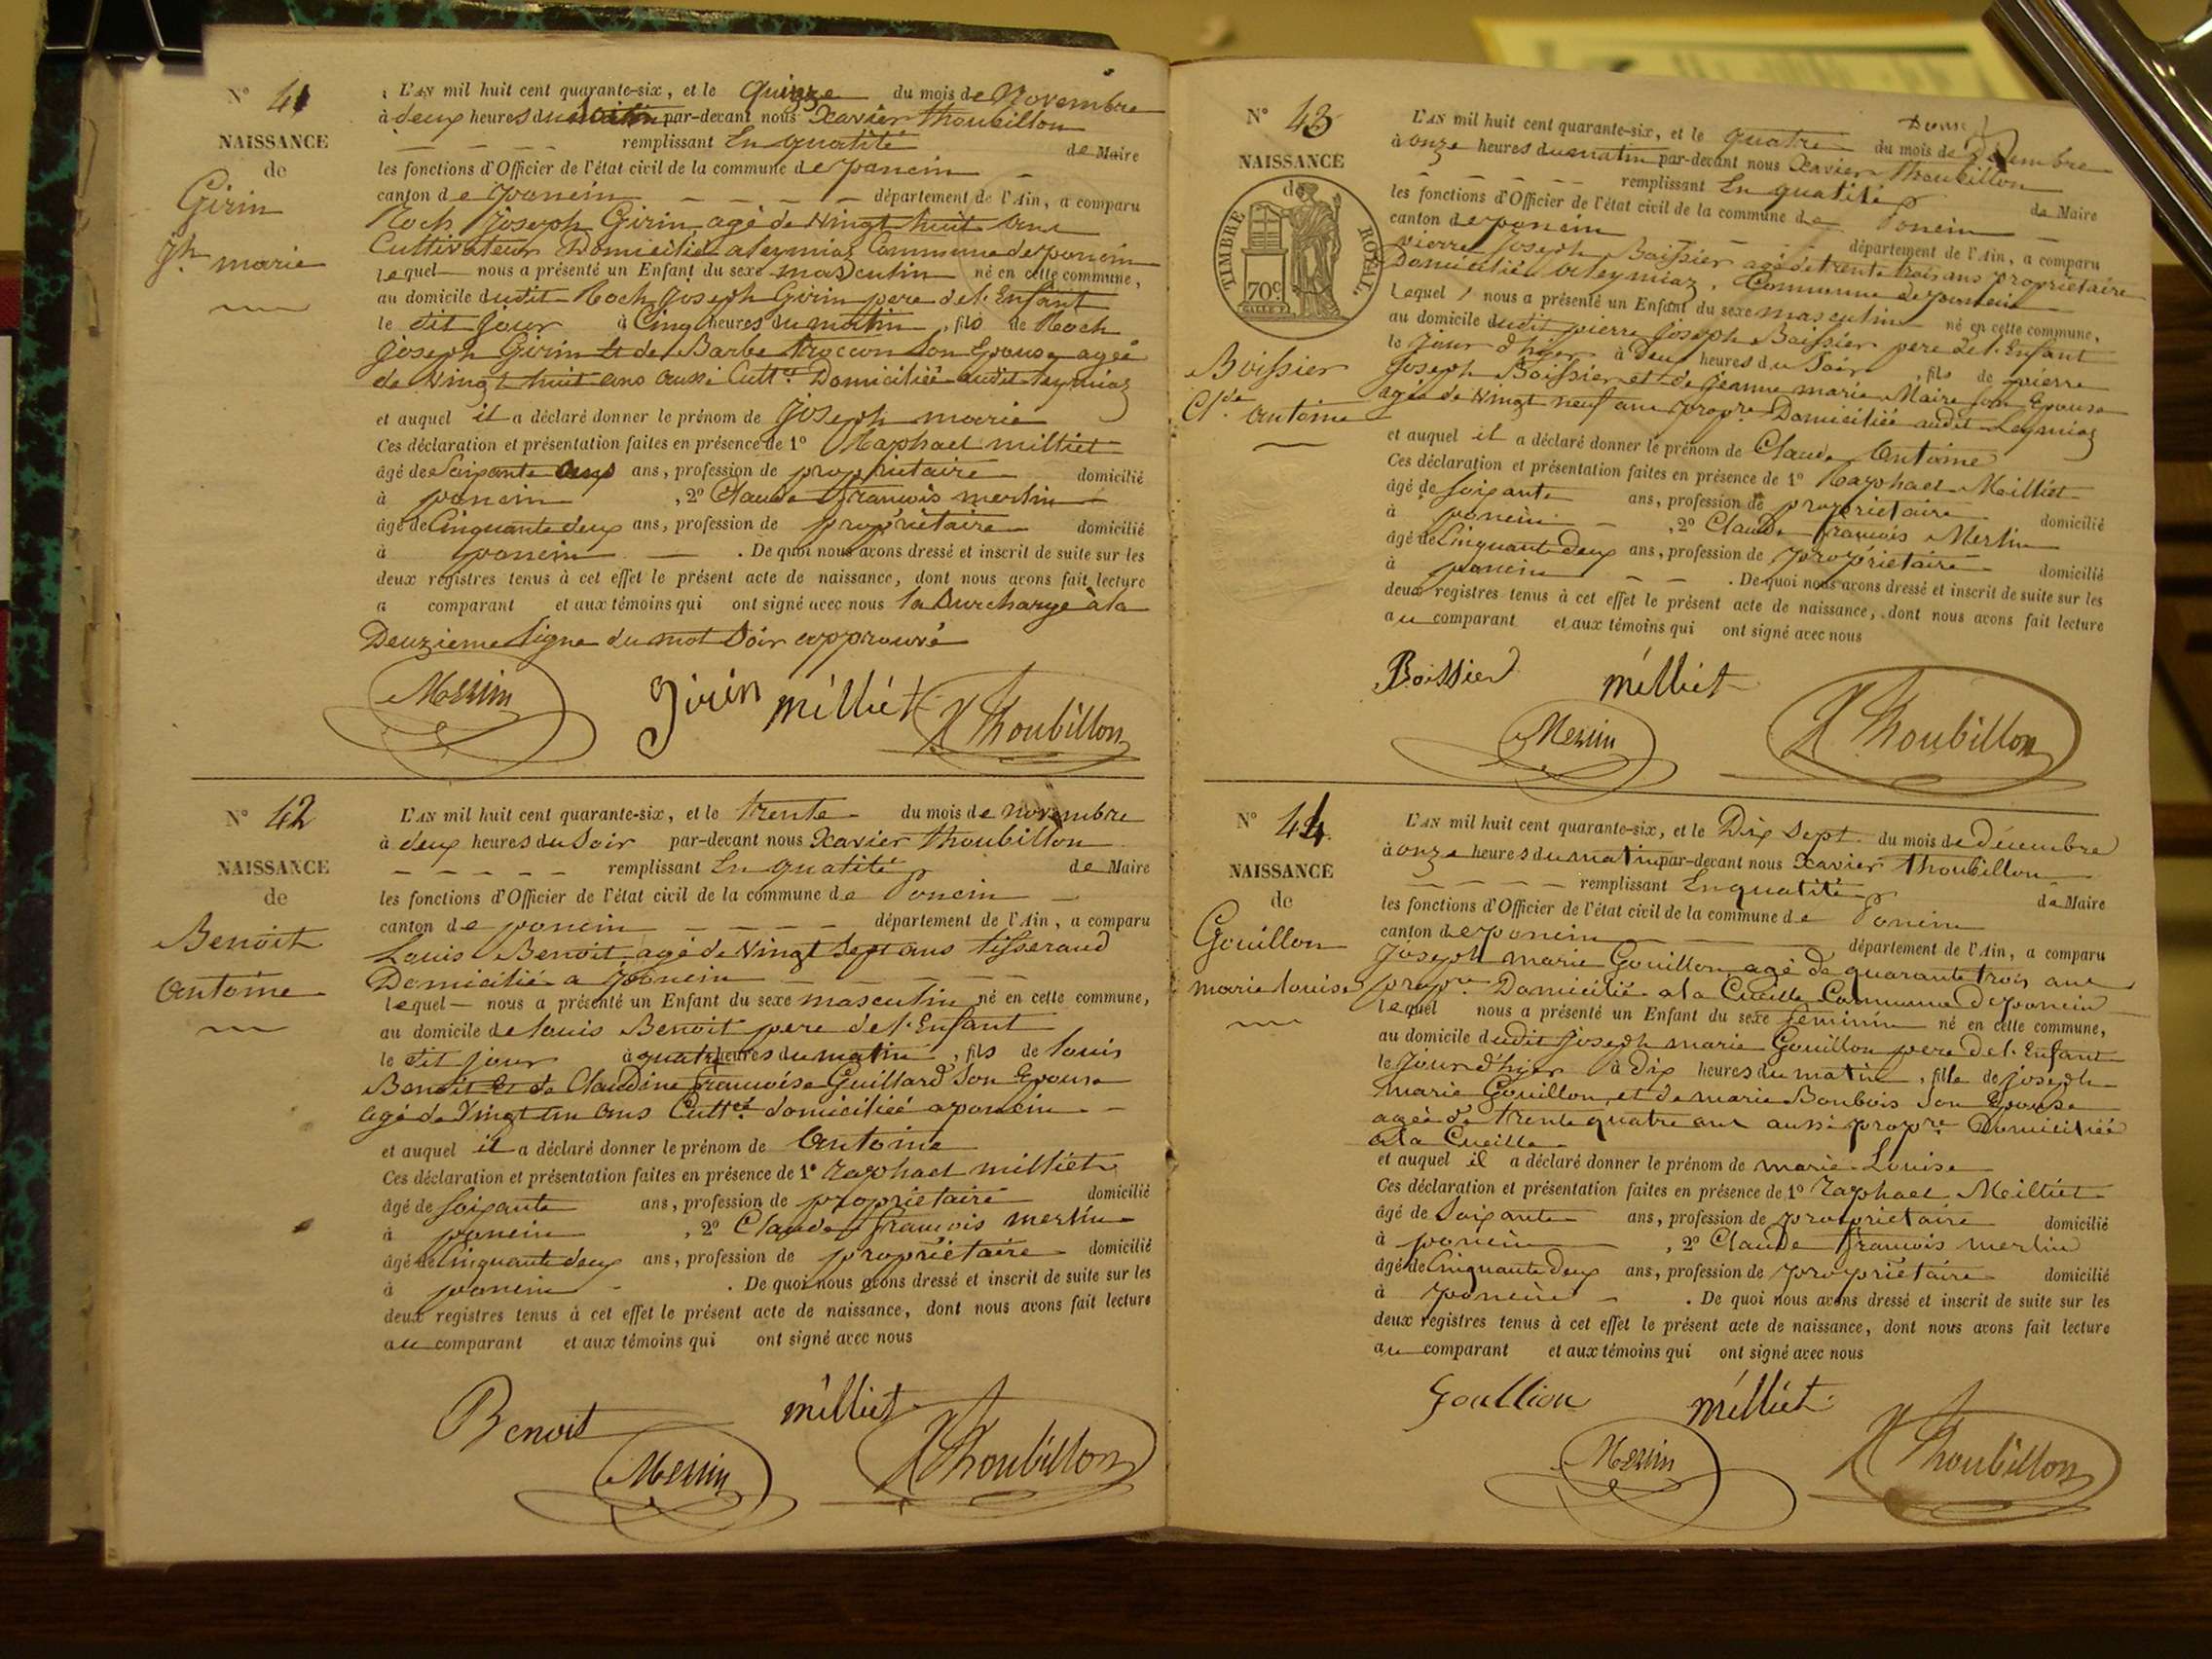 N° 41
NAISSANCE
de
Girin
Jh marie
L'AN mil huit cent quarante-six, et le quinze du mois de Novembre
à deux heures du par-devant nous Xavier thoubillon
remplissant En qualité de Maire
les fonctions d'Officier de l'état civil de la commune de poncin
canton de poncin département de l'Ain, a comparu
Roch Joseph Girin agé de Vingt huit ans
Cultivateur Domicilié a leymiaz Commune de poncin
lequel nous a présenté un Enfant du sexe masculin né en cette commune,
au domicile dudit Roch Joseph Girin pere de l'Enfant
le dit jour à Cinq heures du matin, fils de Roch
joseph Girin et de Barbe Son Epouse agée
de Vingt huit ans aussi Cultce Domiciliée audit leymiaz
et auquel il a déclaré donner le prénom de joseph marie
Ces déclaration et présentation faites en présence de 1° Raphael milliet
âgé de Soixante ans, profession de propriétaire domicilié
à poncin, 2° Claude françois merlin
âgé de Cinquante deux ans, profession de propriétaire domicilié
à poncin. De quoi nous avons dressé et inscrit de suite sur les
deux registres tenus à cet effet le présent acte de naissance, dont nous avons fait lecture
a comparant et aux témoins qui ont signé avec nous la Surcharge à la
Deuzieme ligne du mot Soir approuvé
Merlin Girin milliet X Thoubillon
N° 42
NAISSANCE
de
Benoit
Antoine
L'AN mil huit cent quarante-six, et le trente du mois de novembre
à deux heures du Soir par-devant nous Xavier thoubillon
remplissant En qualité de Maire
les fonctions d'Officier de l'état civil de la commune de Poncin
canton de poncin département de l'Ain, a comparu
Louis Benoit agé de Vingt Sept ans tisserand
Domicilié a poncin
lequel nous a présenté un Enfant du sexe masculin né en cette commune,
au domicile de louis Benoit pere de l'Enfant
le dit jour à quatre heures du matin, fils de louis
Benoit et de Claudine françoise Guillard Son Epouse
agé de Vingt un ans Cultce domiciliée a poncin
et auquel il a déclaré donner le prénom de Antoine
Ces déclaration et présentation faites en présence de 1° raphael milliet
âgé de Soixante ans, profession de propriétaire domicilié
à poncin, 2° Claude françois merlin
âgé de Cinquante deux ans, profession de propriétaire domicilié
à poncin. De quoi nous avons dressé et inscrit de suite sur les
deux registres tenus à cet effet le présent acte de naissance, dont nous avons fait lecture
au comparant et aux témoins qui ont signé avec nous
Benoit milliet
Merlin X Thoubillon
N° 43
NAISSANCE
de
TIMBRE ROYAL
70c
Boissier
Cl.de antoine
L'AN mil huit cent quarante-six, et le quatre du mois de Décembre
à onze heures du matin par-devant nous Xavier thoubillon
remplissant En qualité de Maire
les fonctions d'Officier de l'état civil de la commune de Poncin
canton de poncin département de l'Ain, a comparu
pierre Joseph Boissier agé de trente trois ans propriétaire
Domicilié a leymiaz, Commune de poncin
Lequel nous a présenté un Enfant du sexe masculin né en cette commune,
au domicile dudit pierre joseph Boissier pere de l'Enfant
le jour d'hier à Deux heures du Soir, fils de pierre
joseph Boissier et de jeanne marie Maire Son Epouse
agée de Vingt neuf ans propre Domiciliée audit Leymiaz
et auquel il a déclaré donner le prénom de Claude Antoine
Ces déclaration et présentation faites en présence de 1° Raphael Milliet
âgé de Soixante ans, profession de propriétaire domicilié
à poncin, 2° Claude françois Merlin
âgé de Cinquante Deux ans, profession de propriétaire domicilié
à poncin. De quoi nous avons dressé et inscrit de suite sur les
deux registres tenus à cet effet le présent acte de naissance, dont nous avons fait lecture
au comparant et aux témoins qui ont signé avec nous
Boissier milliet
Merlin X Thoubillon
N° 44
NAISSANCE
de
Gouillon
marie louise
L'AN mil huit cent quarante-six, et le Dix Sept du mois de décembre
à onze heures du matin par-devant nous Xavier thoubillon
remplissant En qualité de Maire
les fonctions d'Officier de l'état civil de la commune de Poncin
canton de poncin département de l'Ain, a comparu
Joseph marie Gouillon agé de quarante trois ans
propre Domicilié a la Cueille Commune de poncin
lequel nous a présenté un Enfant du sexe feminin né en cette commune,
au domicile dudit joseph marie Gouillon pere de l'Enfant
le jour d'hier à dix heures du matin, fille de joseph
marie Gouillon, et de marie Bonbois Son Epouse
agée de trente quatre ans aussi propre Domiciliée
a la Cueille
et auquel il a déclaré donner le prénom de marie Louise
Ces déclaration et présentation faites en présence de 1° raphael Milliet
âgé de Soixante ans, profession de propriétaire domicilié
à poncin, 2° Claude françois merlin
âgé de Cinquante Deux ans, profession de propriétaire domicilié
à poncin. De quoi nous avons dressé et inscrit de suite sur les
deux registres tenus à cet effet le présent acte de naissance, dont nous avons fait lecture
au comparant et aux témoins qui ont signé avec nous
Goullion milliet
Merlin X Thoubillon